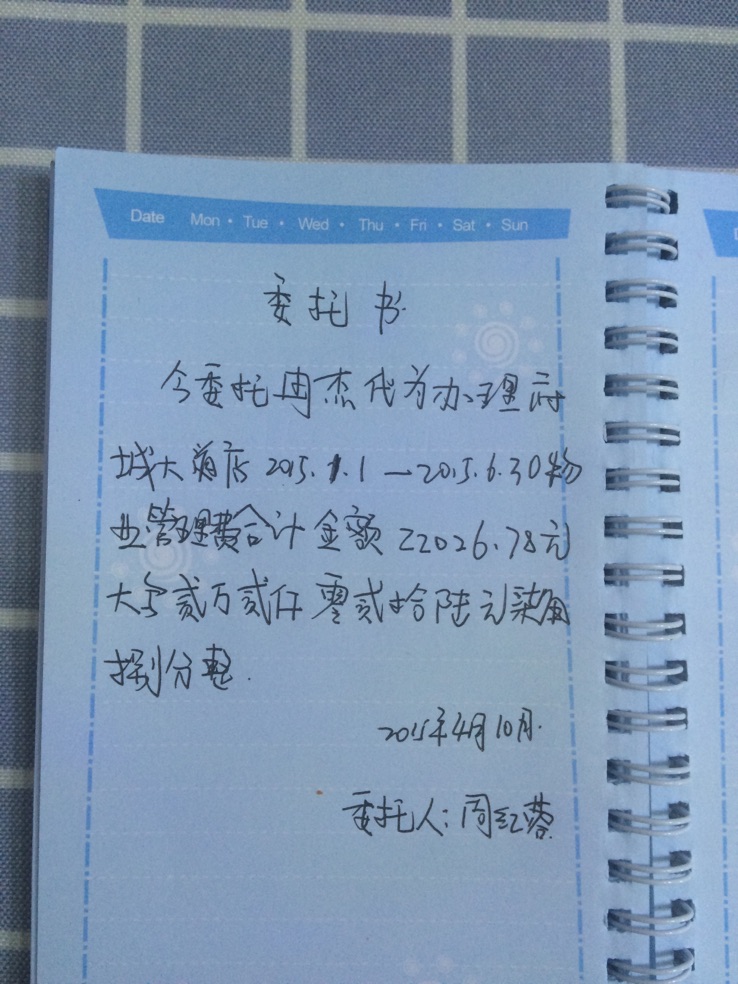 Date Mon • Tue • Wed • Thu • Fri • Sat • Sun
委托书
今委托周杰代为办理府
城大酒店 2015.1.1—2015.6.30物
业管理费合计金额 22026.78元
大写贰万贰仟零贰拾陆元柒角
捌分整.
2015年4月10月.
委托人:周红蓉